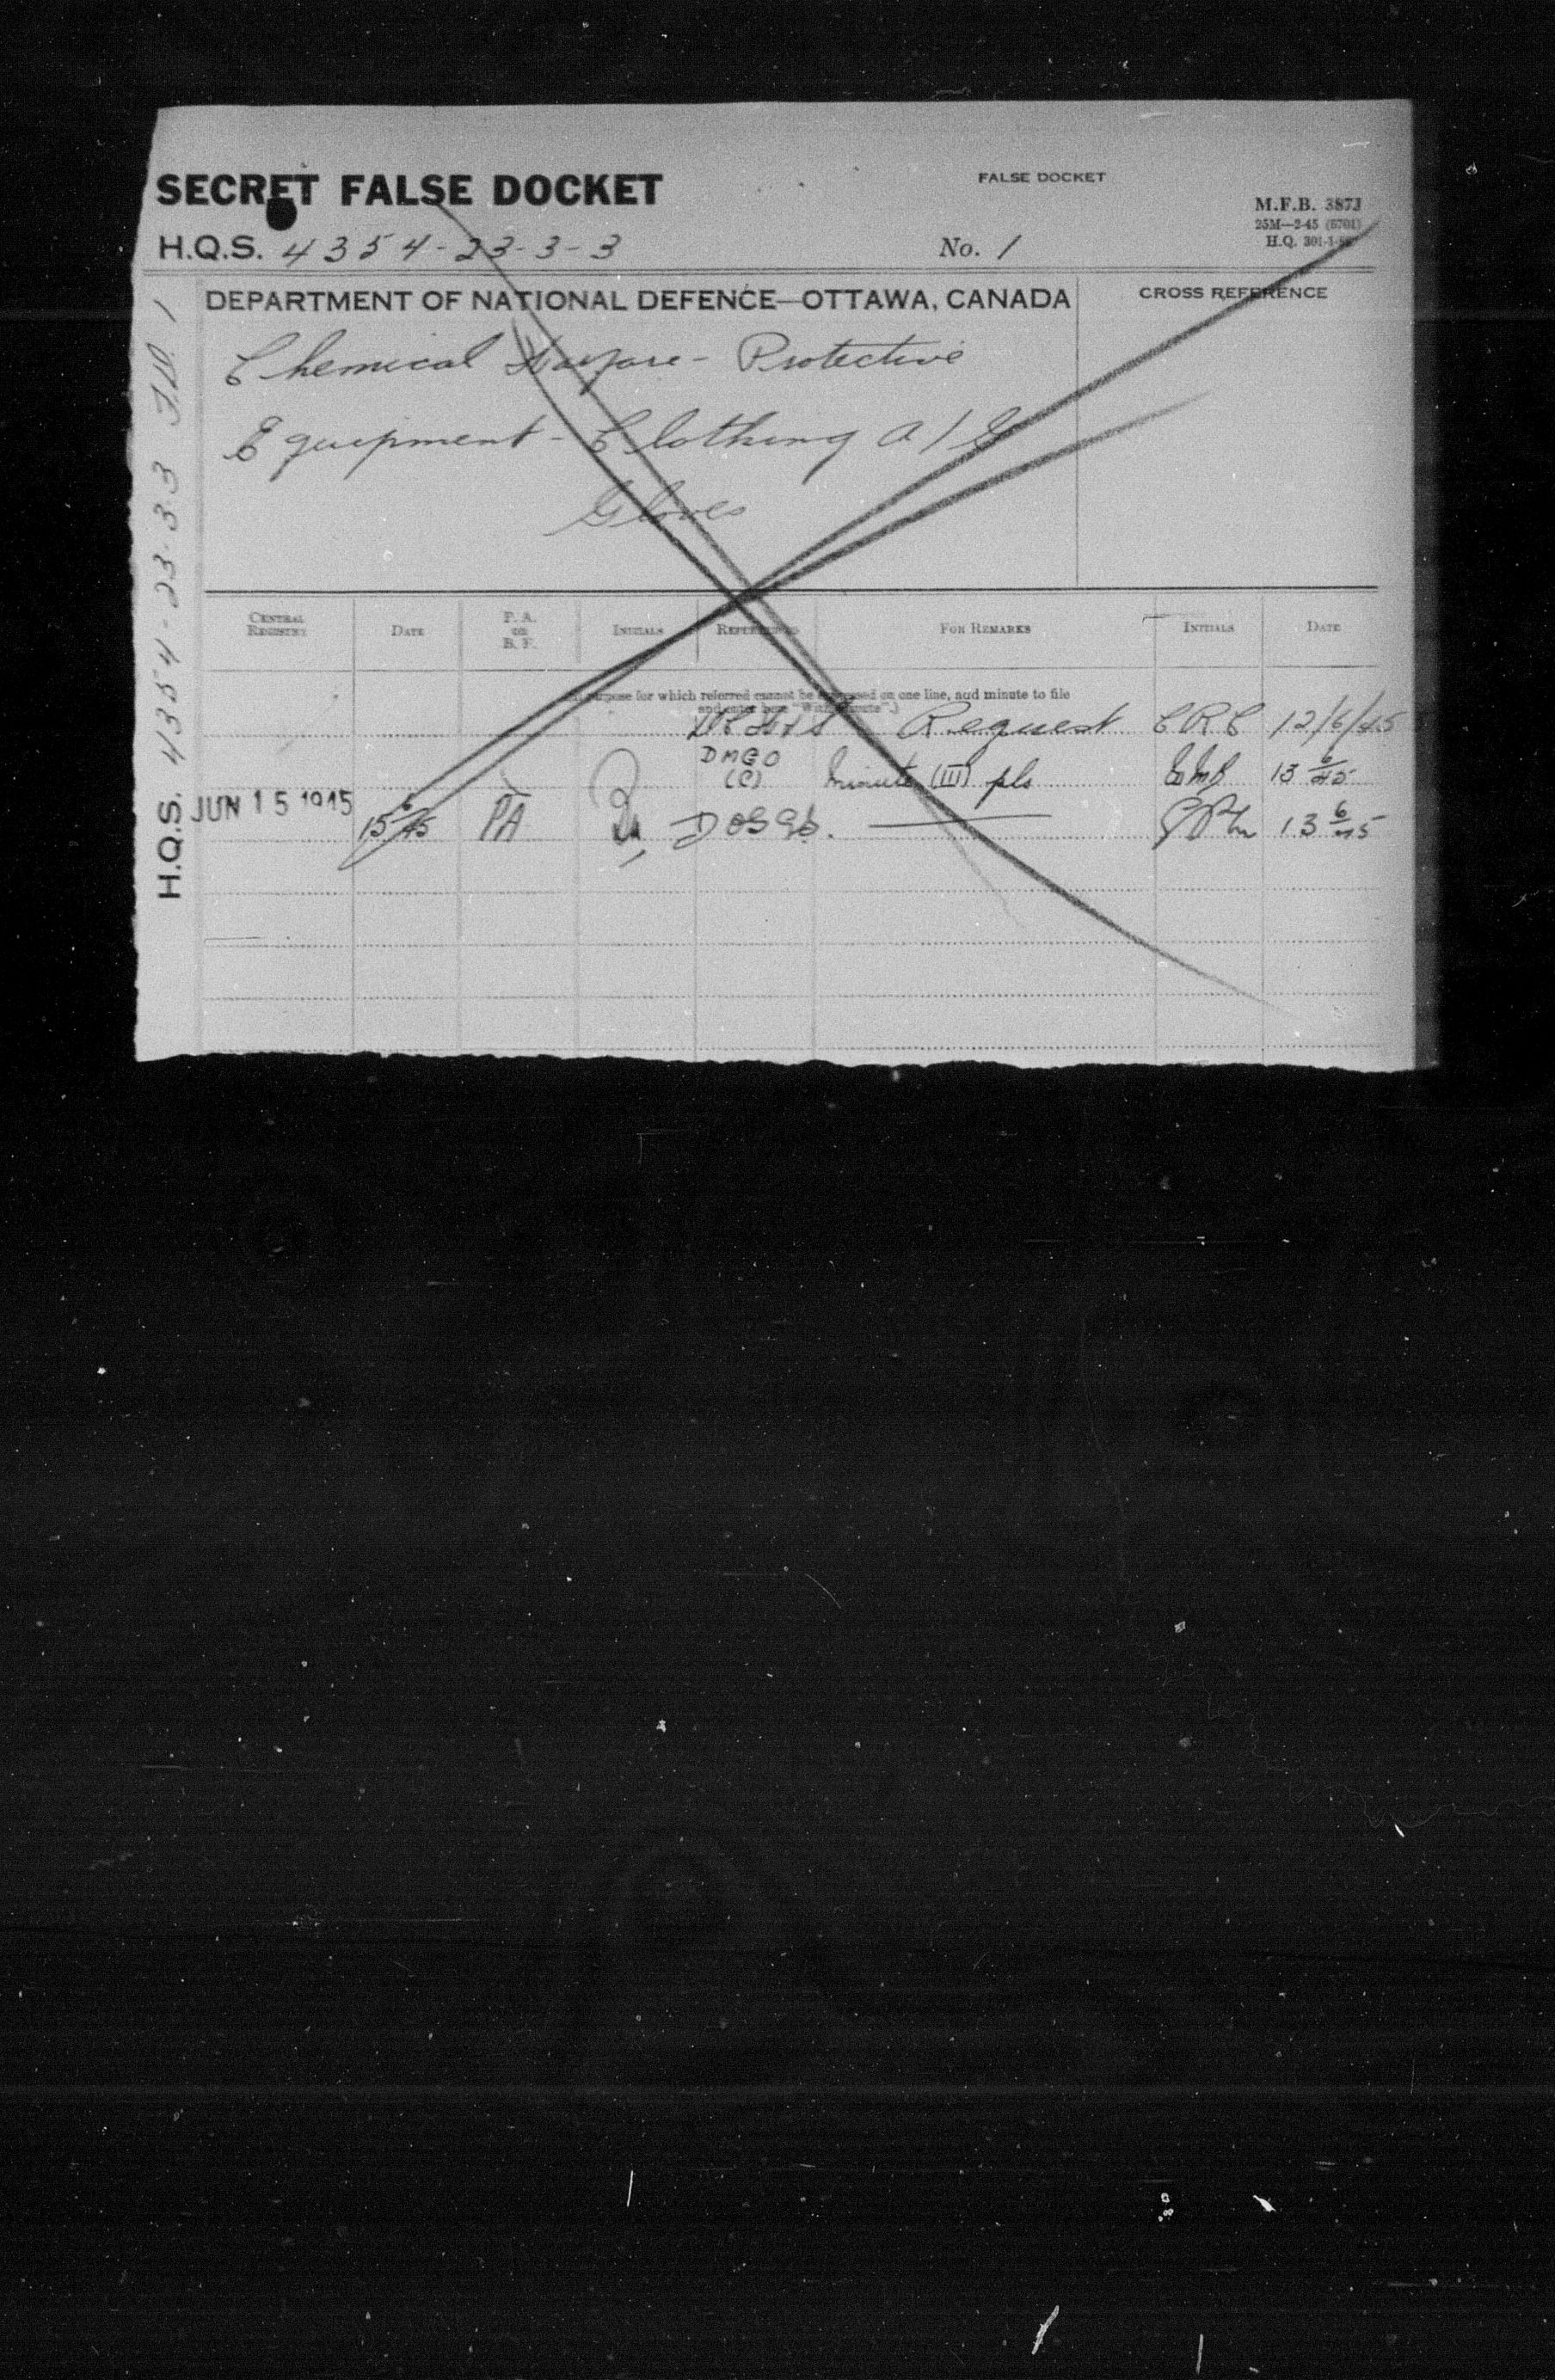 SECRET FALSE DOCKET
FALSE DOCKET
M.F.B. 387J
25M—2-45 (6701)
H.Q. 301-1-
H.Q.S. 4354-23-3-3
No. 1
DEPARTMENT OF NATIONAL DEFENCE—OTTAWA, CANADA
CROSS REFERENCE
Chemical Warfare - Protective
Equipment - Clothing A/G
Gloves
H.Q.S. 4354-23-3-3 F.D. 1
CENTRAL REGISTRY
DATE
P. A. OR B. F.
INITIALS
REFERRED
FOR REMARKS
INITIALS
DATE
purpose for which referred cannot be expressed on one line, add minute to file
and enter here "With Minute".)
Request CRC 12/6/45
DMGO
(C) Minute (III) pls 13 6/45
JUN 15 1945 15 6/45 PA 13 6/45